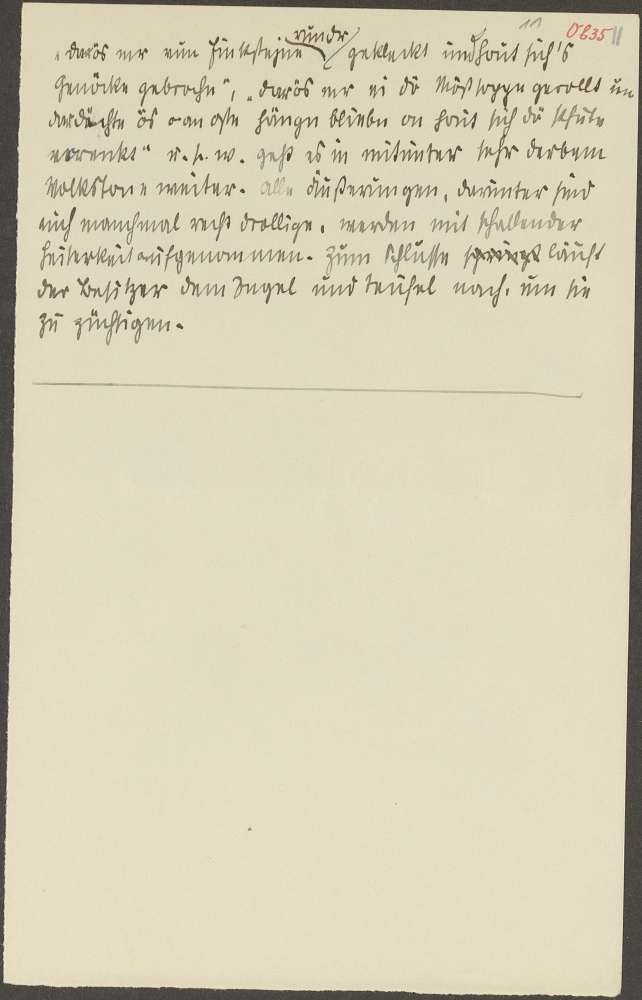 11 O 635 11
„darös mr vun Finkstejne rundr gekleckt und hout sich's
Genöcke gebrochn", „darös mr ei di Mößloppn gerollt un
dar ös o an Aste hängn bliebn on hout sich di
verenkt" u. s. w. geht es in mitunter sehr derbem
Volkstone weiter. Alle Äußerungen, darunter sind
auch manchmal recht drollige, werden mit schallender
Heiterkeit aufgenommen. Zum Schlusse springt läuft
der Besitzer dem Engel und Teufel nach, um sie
zu züchtigen.